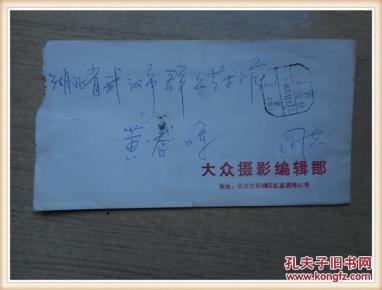 湖北省武汉市群众艺术馆
黄
同志
大众摄影编辑部
地址：北京市东城区红星胡同61号
孔夫子旧书网